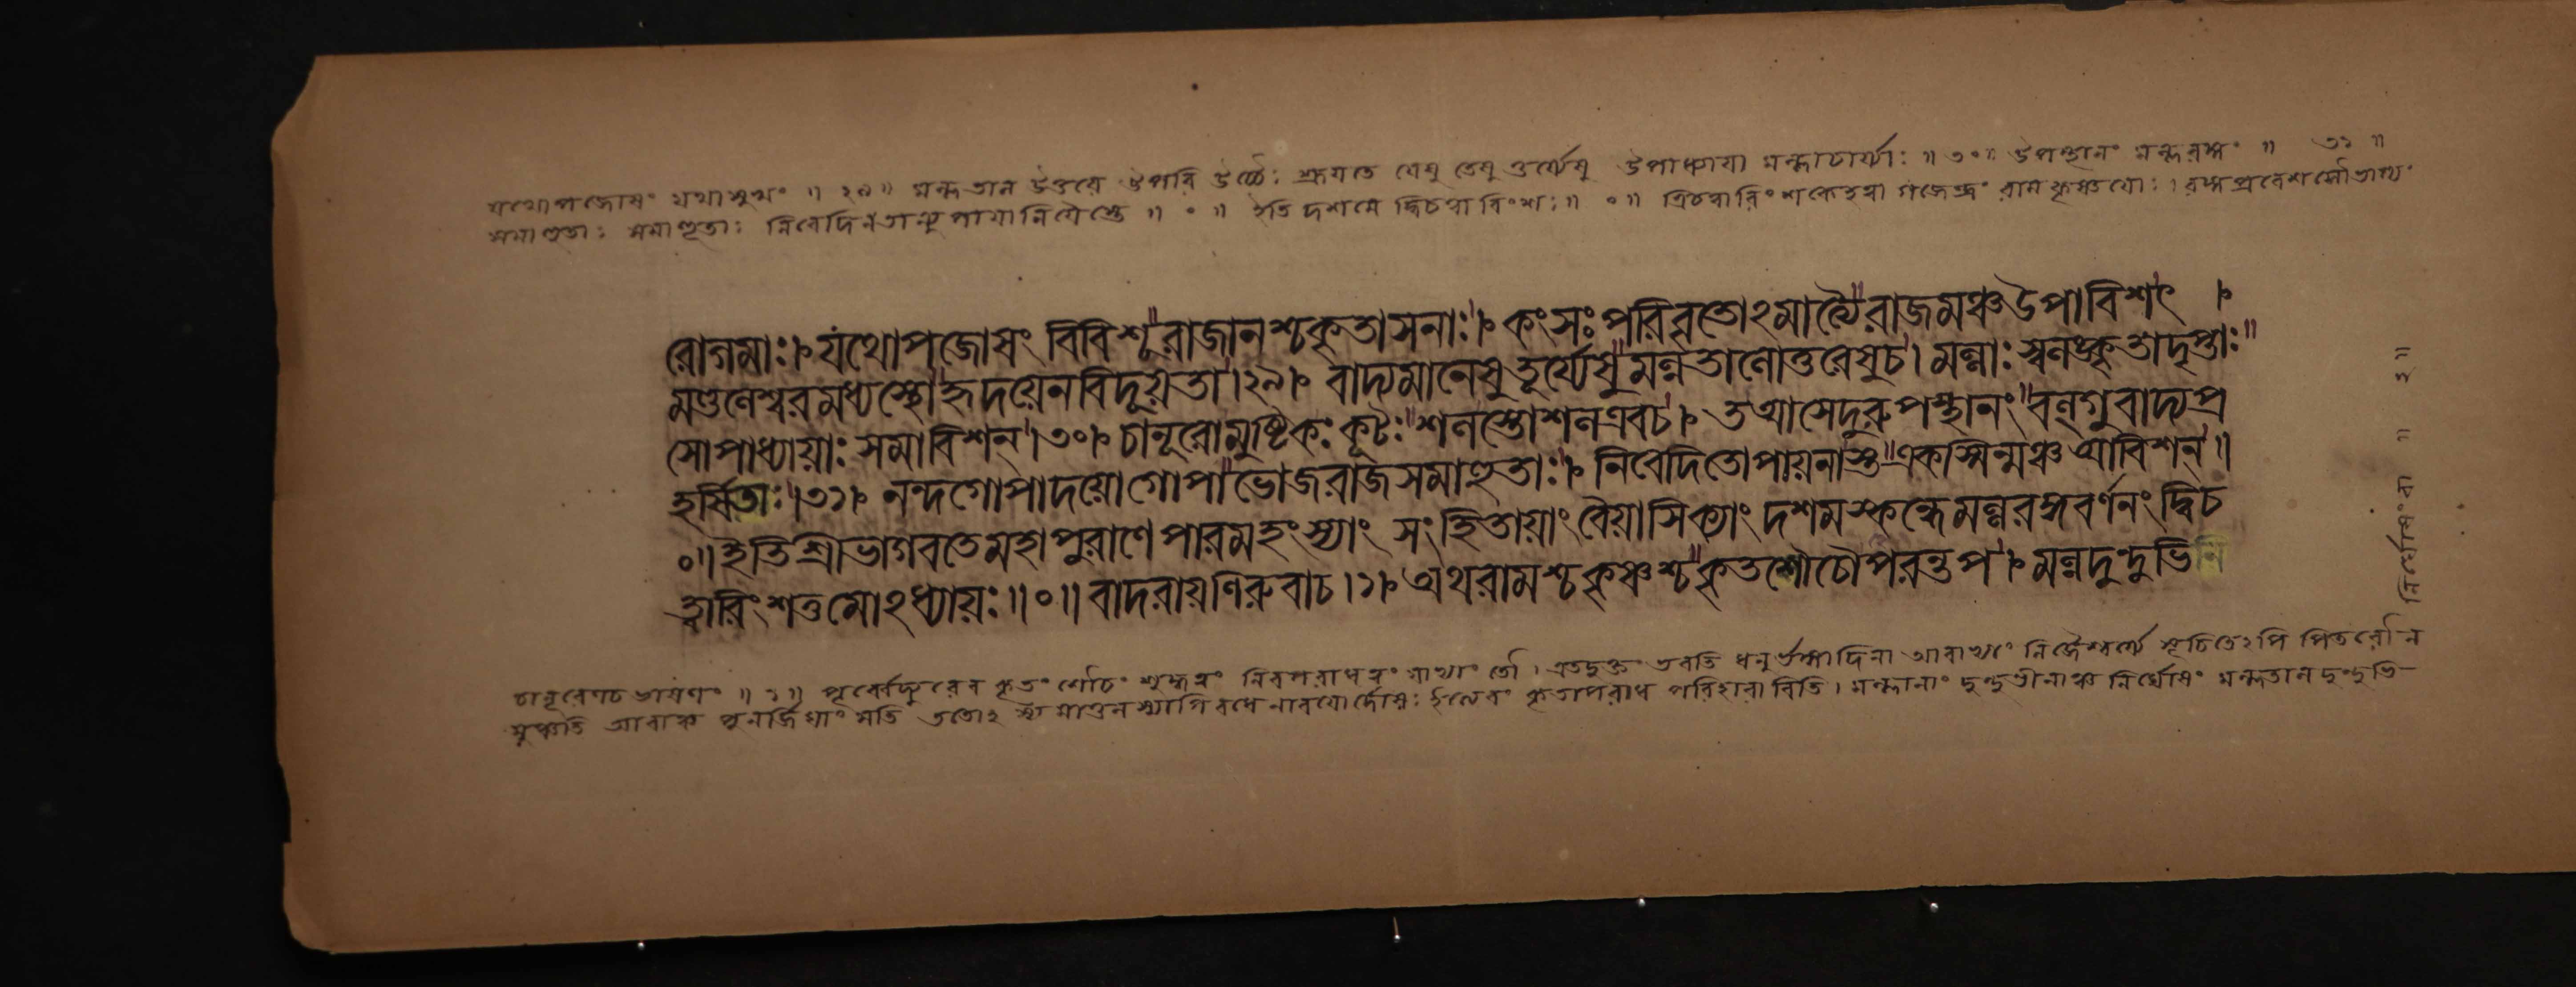 যথোপজোষং যথাসুখং ॥ ২৯॥ মল্লতাল উত্তরে উপরি উচ্চৈঃ শ্রূয়তে যেষু তেষু তূর্য্যেষু উপাধ্যায়া মল্লাচার্য্যাঃ ॥৩০॥ উপস্থানং মল্লরঙ্গং ॥ ৩১ ॥
সমাহুতাঃ সমাহূতাঃ ॥ ০ ॥ ইতি দশমে দ্বিচত্বারিংশঃ॥ ০॥ গজেন্দ্রং রামকৃষ্ণয়োঃ। রঙ্গপ্রবেশ
রোগমাঃ। যথোপজোষং বিবিশূ রাজানশ্চকৃতাসনাঃ। কংসঃ পরিবৃতোঽমাত্যৈ রাজমঞ্চউপাবিশৎ ।
মণ্ডলেশ্বরমধ্যস্থো হৃদয়েনবিদূয়তা।২৯। বাদ্যমানেষু তূর্য্যেষু মল্লতালোত্তরেষুচ। মল্লাঃ স্বলঙ্কৃতাদৃপ্তাঃ
সোপাধ্যায়াঃ সমাবিশন্।৩০। চানূরোমুষ্টিকঃ কূটঃ শলস্তোশলএবচ। তআসেদুরুপস্থানং বল্গুবাদ্যপ্র
হর্ষিতাঃ।৩১। নন্দগোপাদয়োগোপা ভোজরাজসমাহুতাঃ। নিবেদিতোপায়নাস্ত একস্মিন্মঞ্চআবিশন্॥
০॥ ইতিশ্রীভাগবতেমহাপুরাণে পারমহংস্যাং সংহিতায়াং বৈয়াসিক্যাং দশমস্কন্ধেমল্লরঙ্গবর্ণনং দ্বিচ
ত্বারিংশত্তমোঽধ্যায়ঃ॥০॥ বাদরায়ণিরুবাচ।১। অথরামশ্চকৃষ্ণশ্চ কৃতশৌচৌপরন্তপ। মল্লদুন্দুভিনি
চানূরেণচ ভাষণং ॥ ১॥ পূর্বেদ্যুরেব কৃতং শৌচং নিরপরাধত্বং যাভ্যাং তৌ। এতদুক্তং ভবতি ধনুর্ভঙ্গাদিনা নিজৈশ্বর্য্যে সূচিতেঽপি পিতরৌ ন
মুঞ্চতি পুনর্জিঘাংসতি ততোঽ কৃতাপরাধ পরিহারাবিতি। মল্লানাং দুন্দুভীনাঞ্চ নির্ঘোষং মল্লতাল দুন্দুভি-
নির্ঘোষং বা ॥ ২॥